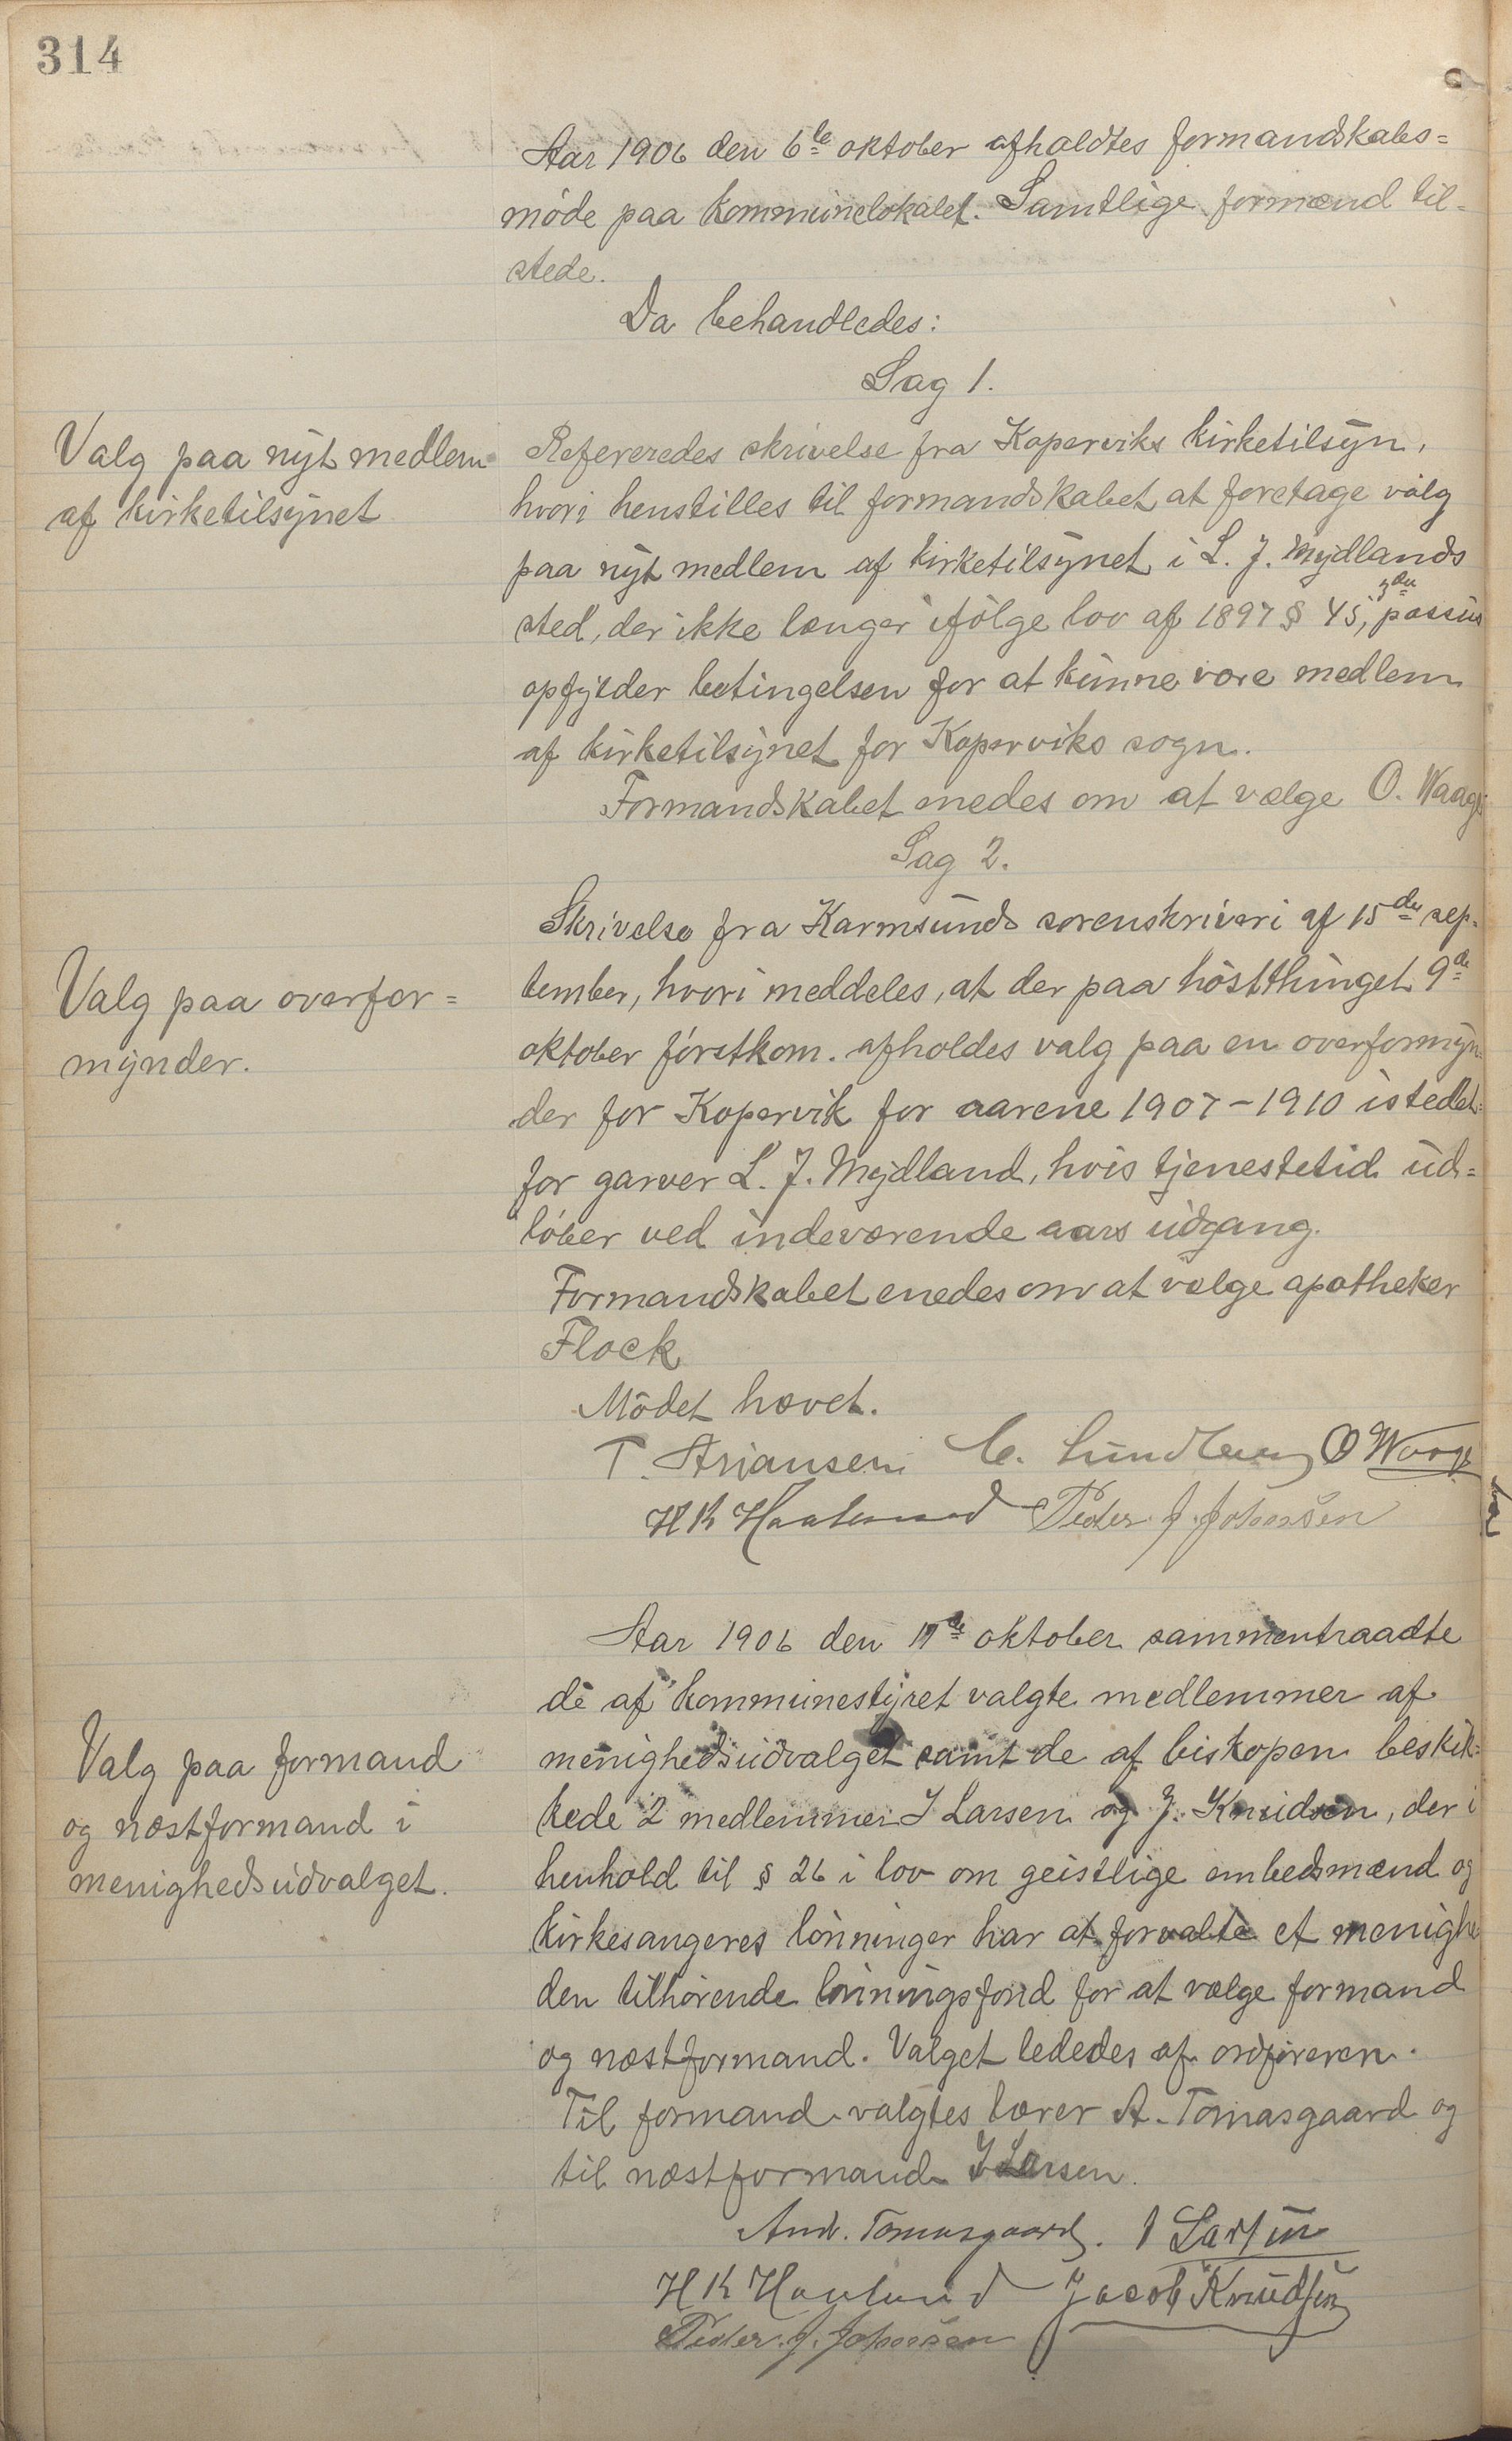 314
Aar 1906 den 6te oktober afholdtes formandskabs=
møde paa kommunelokalet. Samtlige formænd til-
stede.
Da behandledes:
Sag 1.
Valg paa nyt medlem
af kirketilsynet
Refereredes skrivelse fra Koperviks kirketilsyn,
hvori henstilles til formandskabet at foretage valg
paa nyt medlem af kirketilsynet i L. J. Mydlands
sted, der ikke længer ifølge lov af 1897 § 45, 3die passus
opfylder betingelsen for at kunne være medlem
af kirketilsynet for Koperviks sogn.
Formandskabet enedes om at vælge O. Waage
Sag 2.
Valg paa overfor=
mynder.
Skrivelse fra Karmsunds sorenskriveri af 15de sep-
tember, hvori meddeles, at der paa høstthinget 9de
oktober førstkom. afholdes valg paa en overformyn=
der for Kopervik for aarene 1907-1910 istedet=
for garver L. J. Mydland, hvis tjenestetid ud=
løber ved indeværende aars udgang.
Formandskabet enedes om at vælge apotheker
Flock
Mødet hævet.
T. Arjansen C. Lundberg O Waage
H K Haaland Peder J. Johnsen
Aar 1906 den 17de oktober sammentraadte
de af kommunestyret valgte medlemmer af
menighedsudvalget samt de af biskopen beskik=
kede 2 medlemmer I Larsen og J. Knudsen, der i
henhold til § 26 i lov om geistlige embedsmænd og
kirkesangeres lønninger har at forvalte et menighe
den tilhørende lønningsfond for at vælge formand
og næstformand. Valget lededes af ordføreren.
Til formand valgtes lærer A. Tomasgaard og
til næstformand I Larsen.
Valg paa formand
og næstformand i
menighedsudvalget.
Andr. Tomasgaard. I Larsen
H K Haaland Jacob Knudsen
Peder J. Johnsen